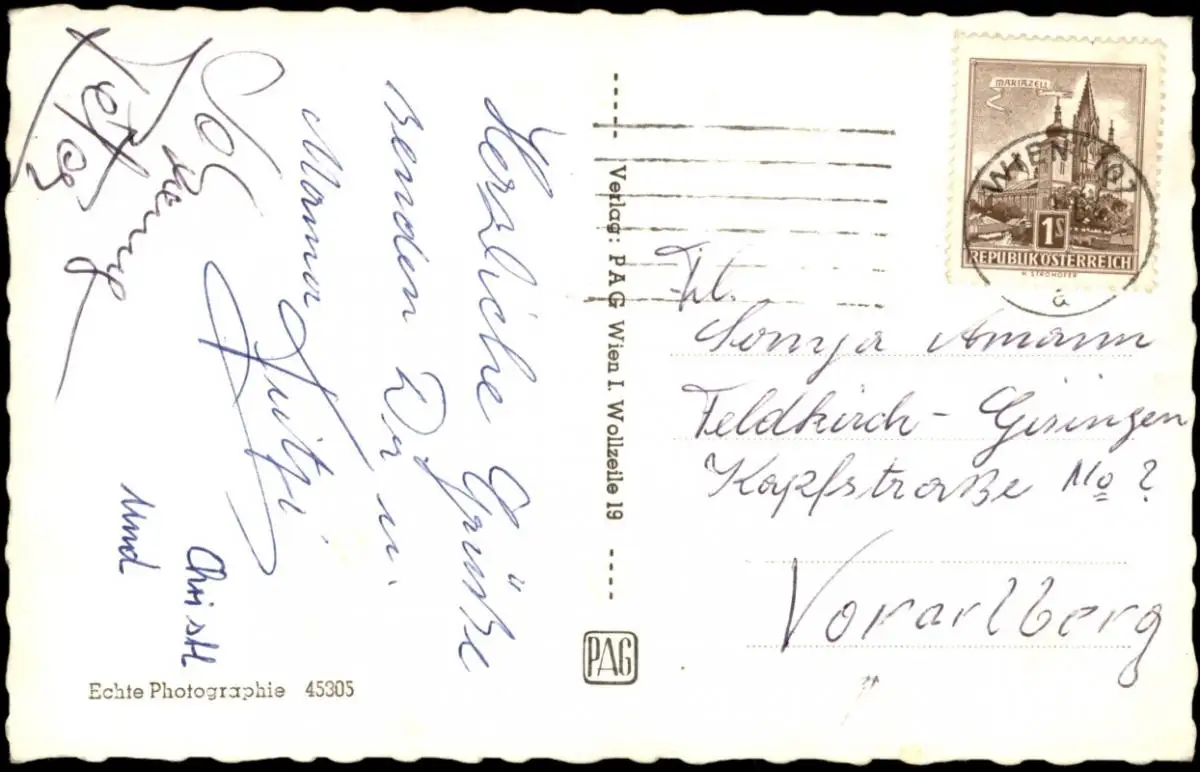 Herzliche Grüße
senden Dir u.
Mama
und
Christl
Echte Photographie 45305
Verlag: PAG Wien I. Wollzeile 19
PAG
MARIAZELL
1S
REPUBLIK ÖSTERREICH
H. STROHOFER
WIEN
Frl.
Sonja Amann
Feldkirch - Gisingen
Kapfstraße No ?
Vorarlberg